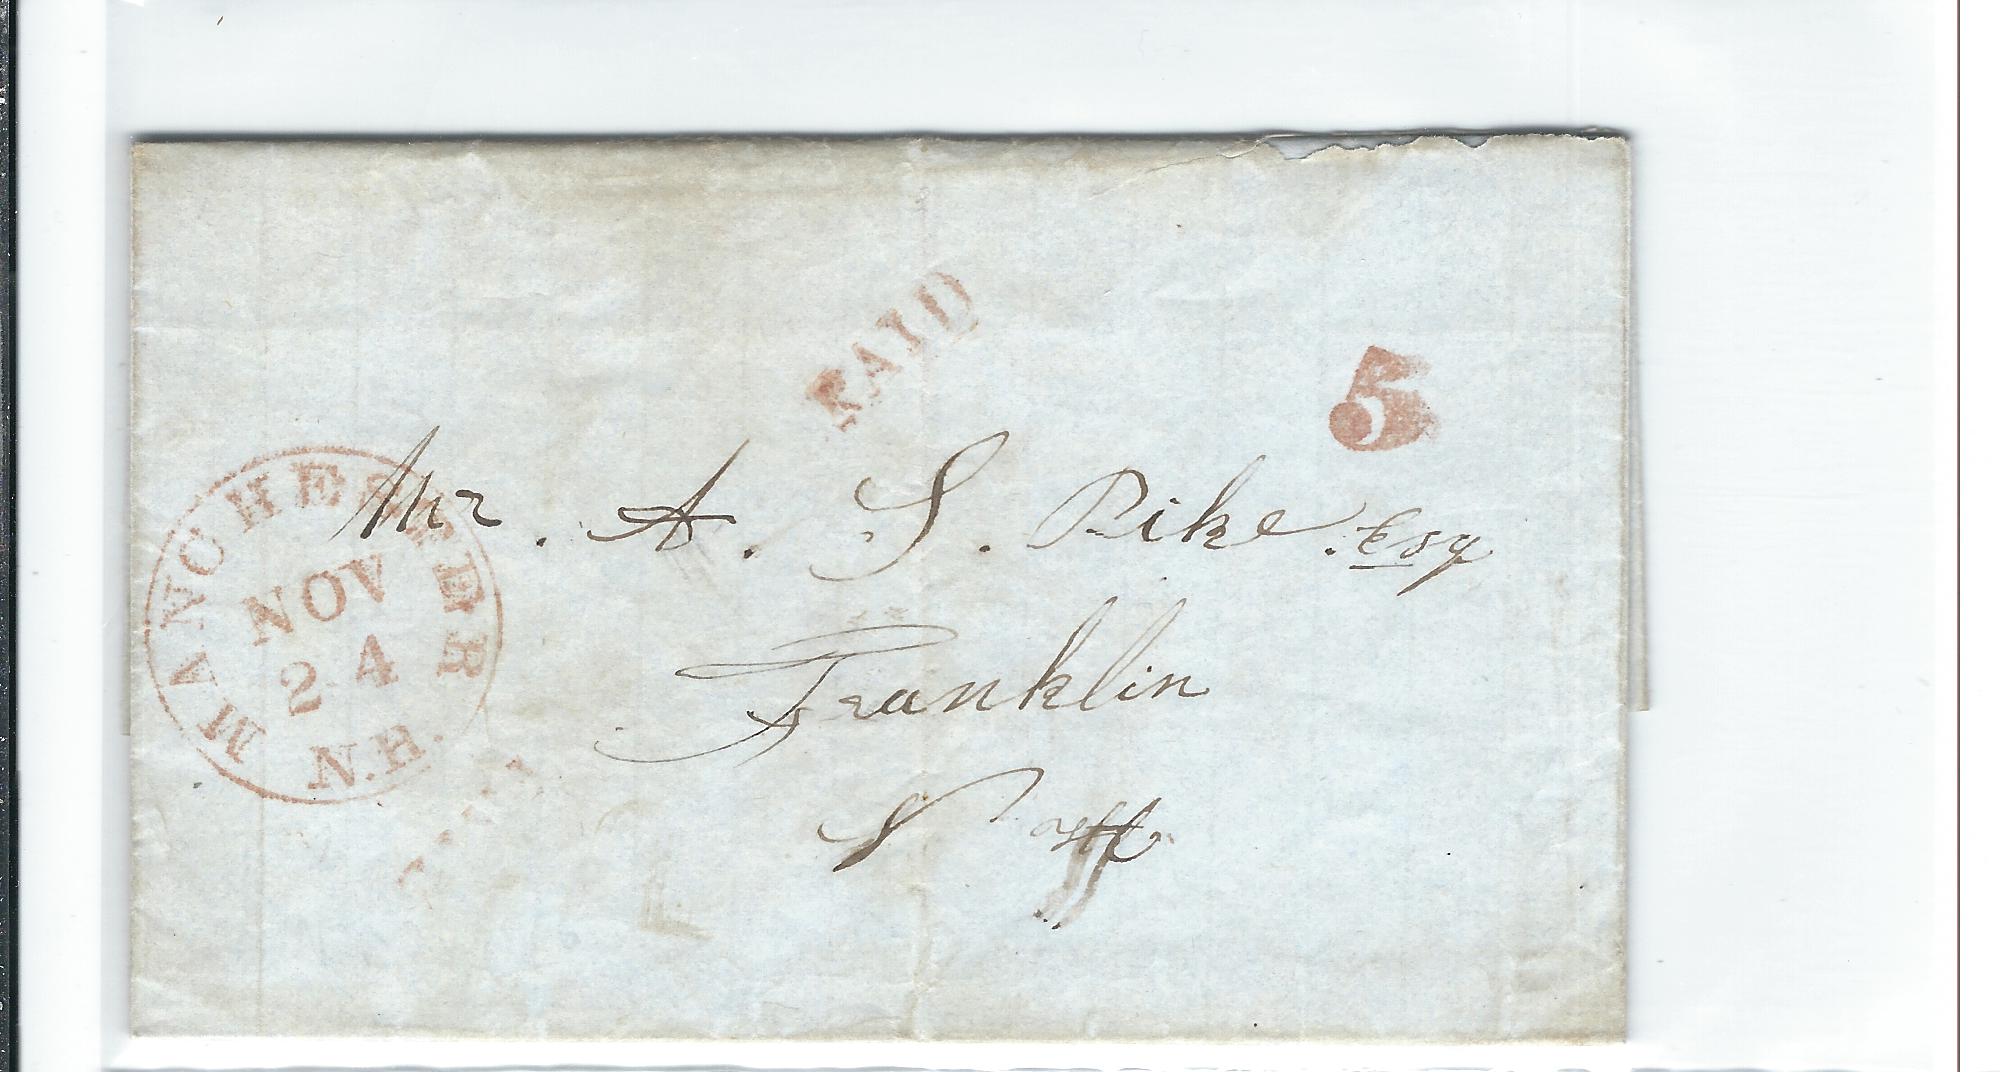 PAID
5
MANCHESTER
NOV
24
N.H.
Mr. A. S. Pike. Esq
Franklin